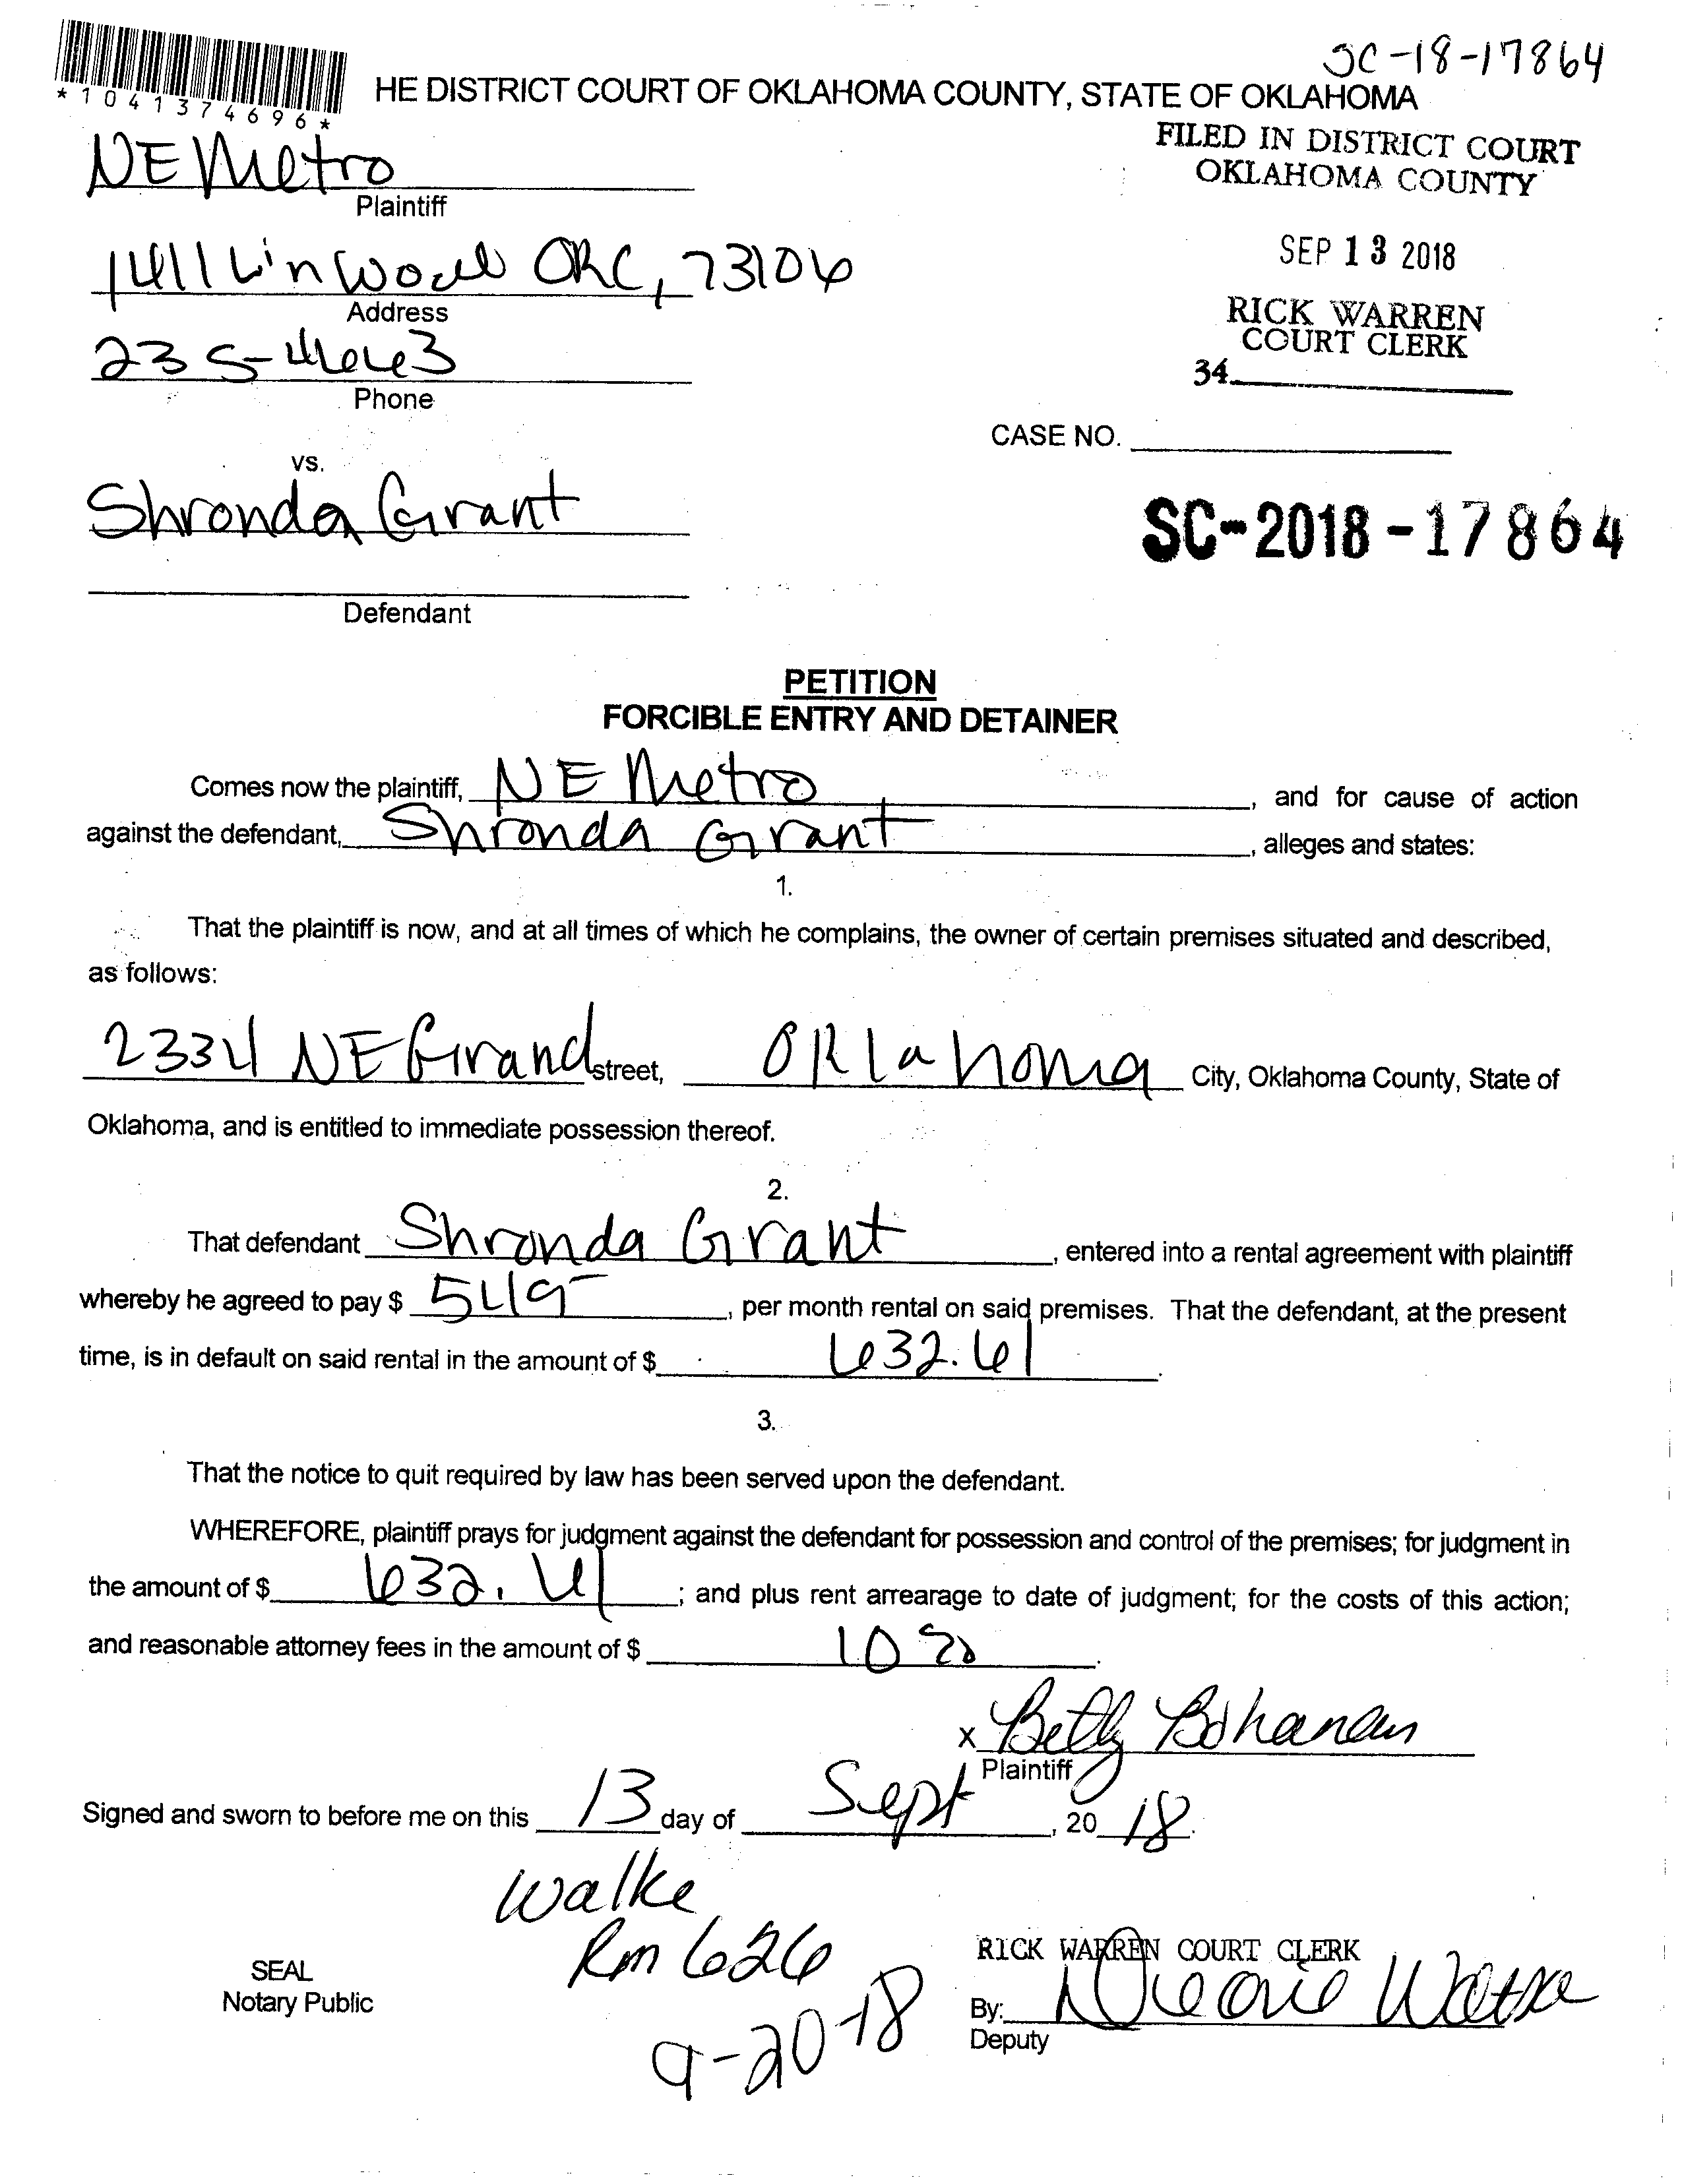 SC-18-17864
*1041374696*
HE DISTRICT COURT OF OKLAHOMA COUNTY, STATE OF OKLAHOMA
FILED IN DISTRICT COURT
OKLAHOMA COUNTY
NE Metro
Plaintiff
SEP 13 2018
1411 Linwood OKC, 73106
Address
RICK WARREN
COURT CLERK
235-
34
Phone
CASE NO.
vs.
Shronda Grant
SC-2018-17864
Defendant
PETITION
FORCIBLE ENTRY AND DETAINER
Comes now the plaintiff, NE Metro, and for cause of action
against the defendant, Shronda Grant, alleges and states:
1.
That the plaintiff is now, and at all times of which he complains, the owner of certain premises situated and described,
as follows:
2334 NE Grand street, Oklahoma City, Oklahoma County, State of
Oklahoma, and is entitled to immediate possession thereof.
2.
That defendant Shronda Grant, entered into a rental agreement with plaintiff
whereby he agreed to pay $ 549, per month rental on said premises. That the defendant, at the present
time, is in default on said rental in the amount of $ 632.61.
3.
That the notice to quit required by law has been served upon the defendant.
WHEREFORE, plaintiff prays for judgment against the defendant for possession and control of the premises; for judgment in
the amount of $ 632.61; and plus rent arrearage to date of judgment; for the costs of this action;
and reasonable attorney fees in the amount of $ 10 %.
x Betty Bohanan
Plaintiff
Signed and sworn to before me on this 13 day of Sept, 20 18.
Walke
Rm 626
9-20-18
SEAL
Notary Public
RICK WARREN COURT CLERK
By:
Deputy